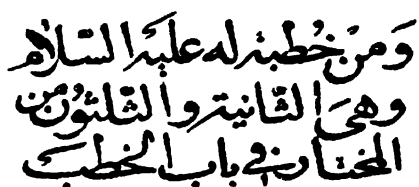 وَمِنْ خُطبة له عليه السّلام
وهيَ الثّانية والثّلثونَ من
المختار في باب الخطب